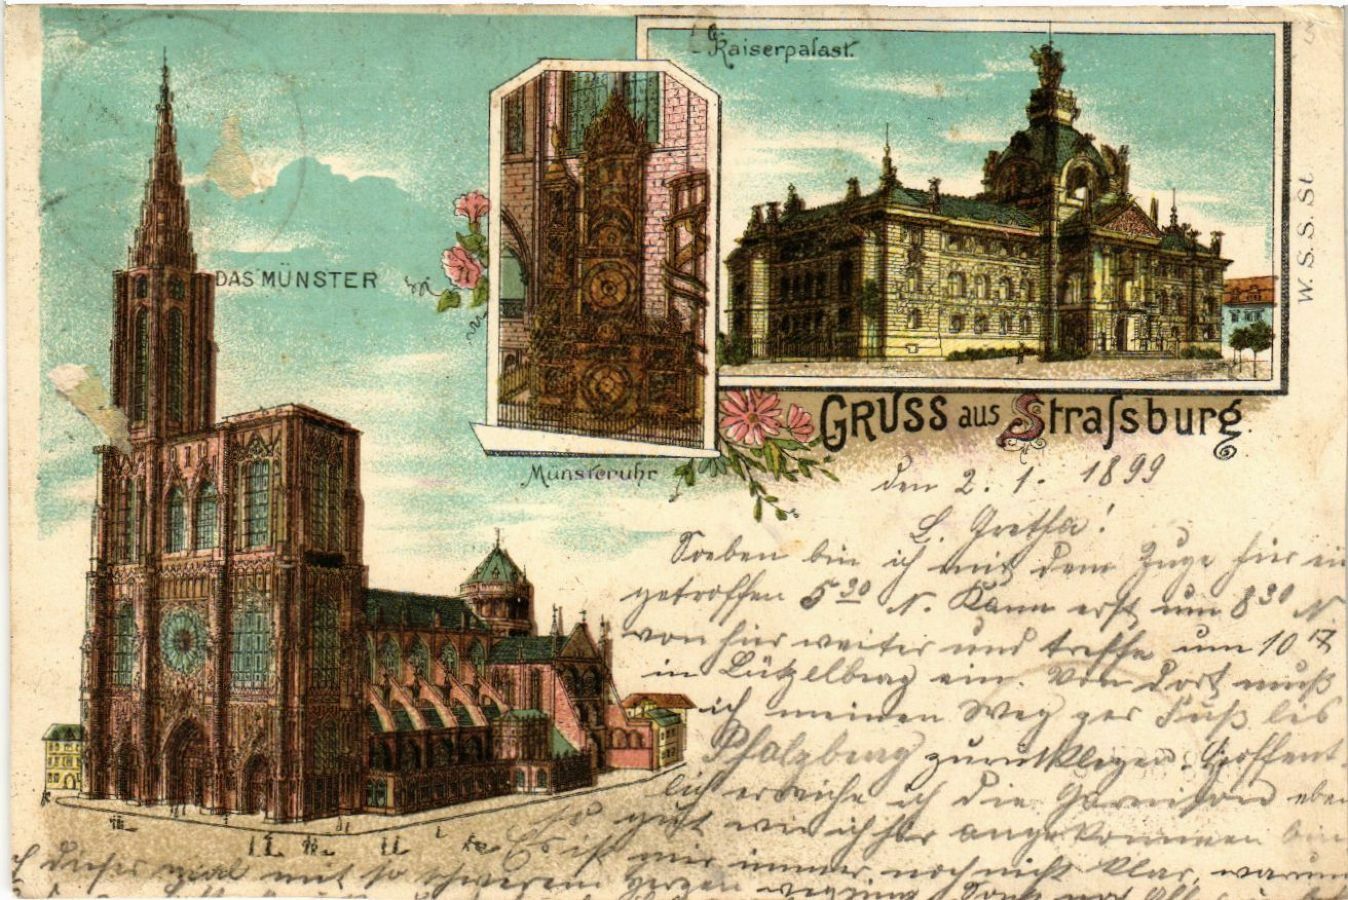 Kaiserpalast.
DAS MÜNSTER
Münsteruhr
W. S. S. St.
GRUSS aus Straſsburg.
den 2. 1. 1899
L. Gretha!
Soeben bin ich mit dem Zuge hier ein
getroffen 5 30 N. Kann erst um 8 30 N
von hier weiter und treffe um 10 17
in Lützelburg ein. Von dort muß
ich meinen Weg per Fuß bis
Pfalzburg zurücklegen. Hoffent
lich erreiche ich die Garnison eben
so gut wie ich hier angekommen bin
Es ist mir immer noch nicht klar, warum
ich dieses mal mit so schwerem Herzen wegging